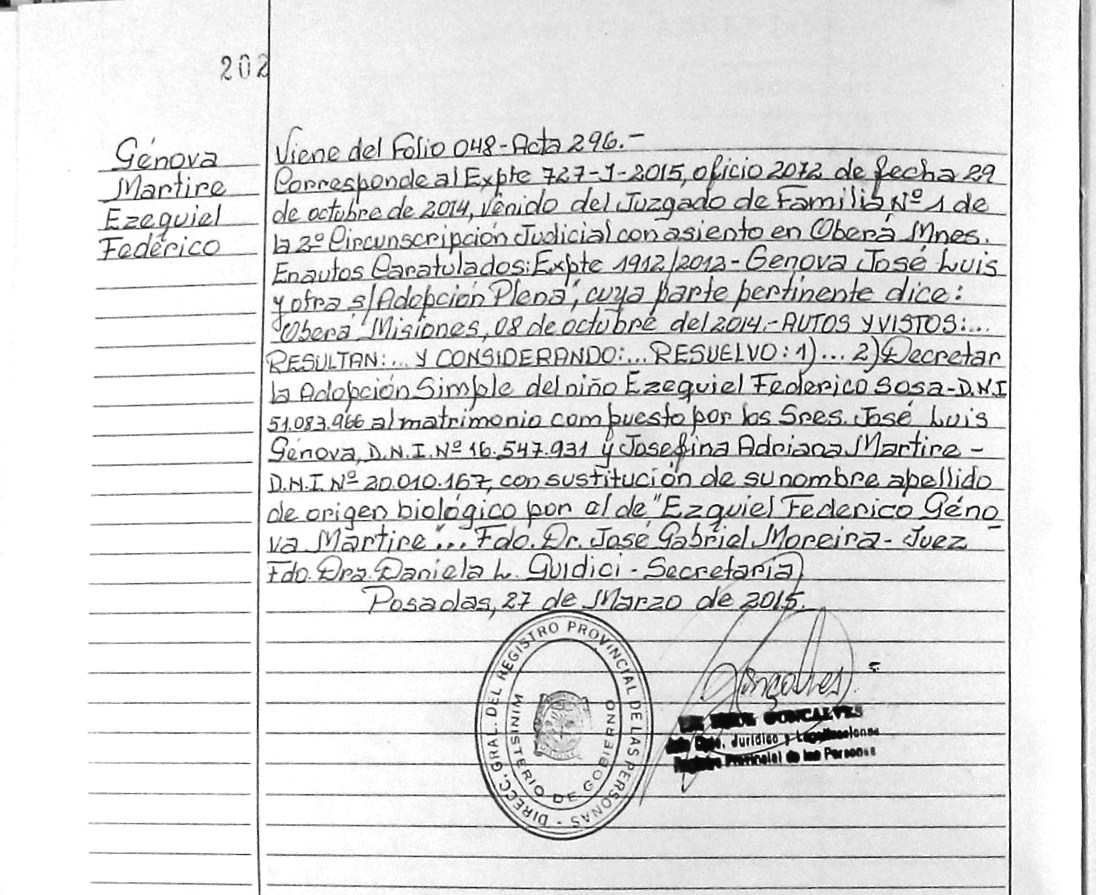 202
Génova
Martire
Ezequiel
Federico
Viene del Folio 048-Acta 296.-
Corresponde al Expte 727-J-2015, oficio 2072 de fecha 29
de octubre de 2014, venido del Juzgado de Familia Nº 1 de
la 2º Circunscripción Judicial con asiento en Oberá Mnes.
En autos Caratulados: Expte 1912/2012- Genova José Luis
y otra s/Adopción Plena", cuya parte pertinente dice:
"Oberá Misiones, 08 de octubre del 2014.- AUTOS Y VISTOS:...
RESULTAN:... Y CONSIDERANDO:... RESUELVO: 1)... 2) Decretar
la Adopción Simple del niño Ezequiel Federico Sosa-D.N.I
51.083.966 al matrimonio compuesto por los Sres. José Luis
Génova, D.N.I. Nº 16.547.931 y Josefina Adriana Martire -
D.N.I. Nº 20.010.167, con sustitución de su nombre apellido
de origen biológico por el de "Ezquiel Federico Géno
va Martire"... Fdo. Dr. José Gabriel Moreira - Juez
Fdo. Dra. Daniela L. Guidici - Secretaria)
Posadas, 27 de Marzo de 2015.
DIRECC. GRAL. DEL REGISTRO PROVINCIAL DE LAS PERSONAS -
MINISTERIO DE GOBIERNO
Gonçalves
GONCALVES
Dpto. Jurídico y Legalizaciones
Registro Provincial de las Personas